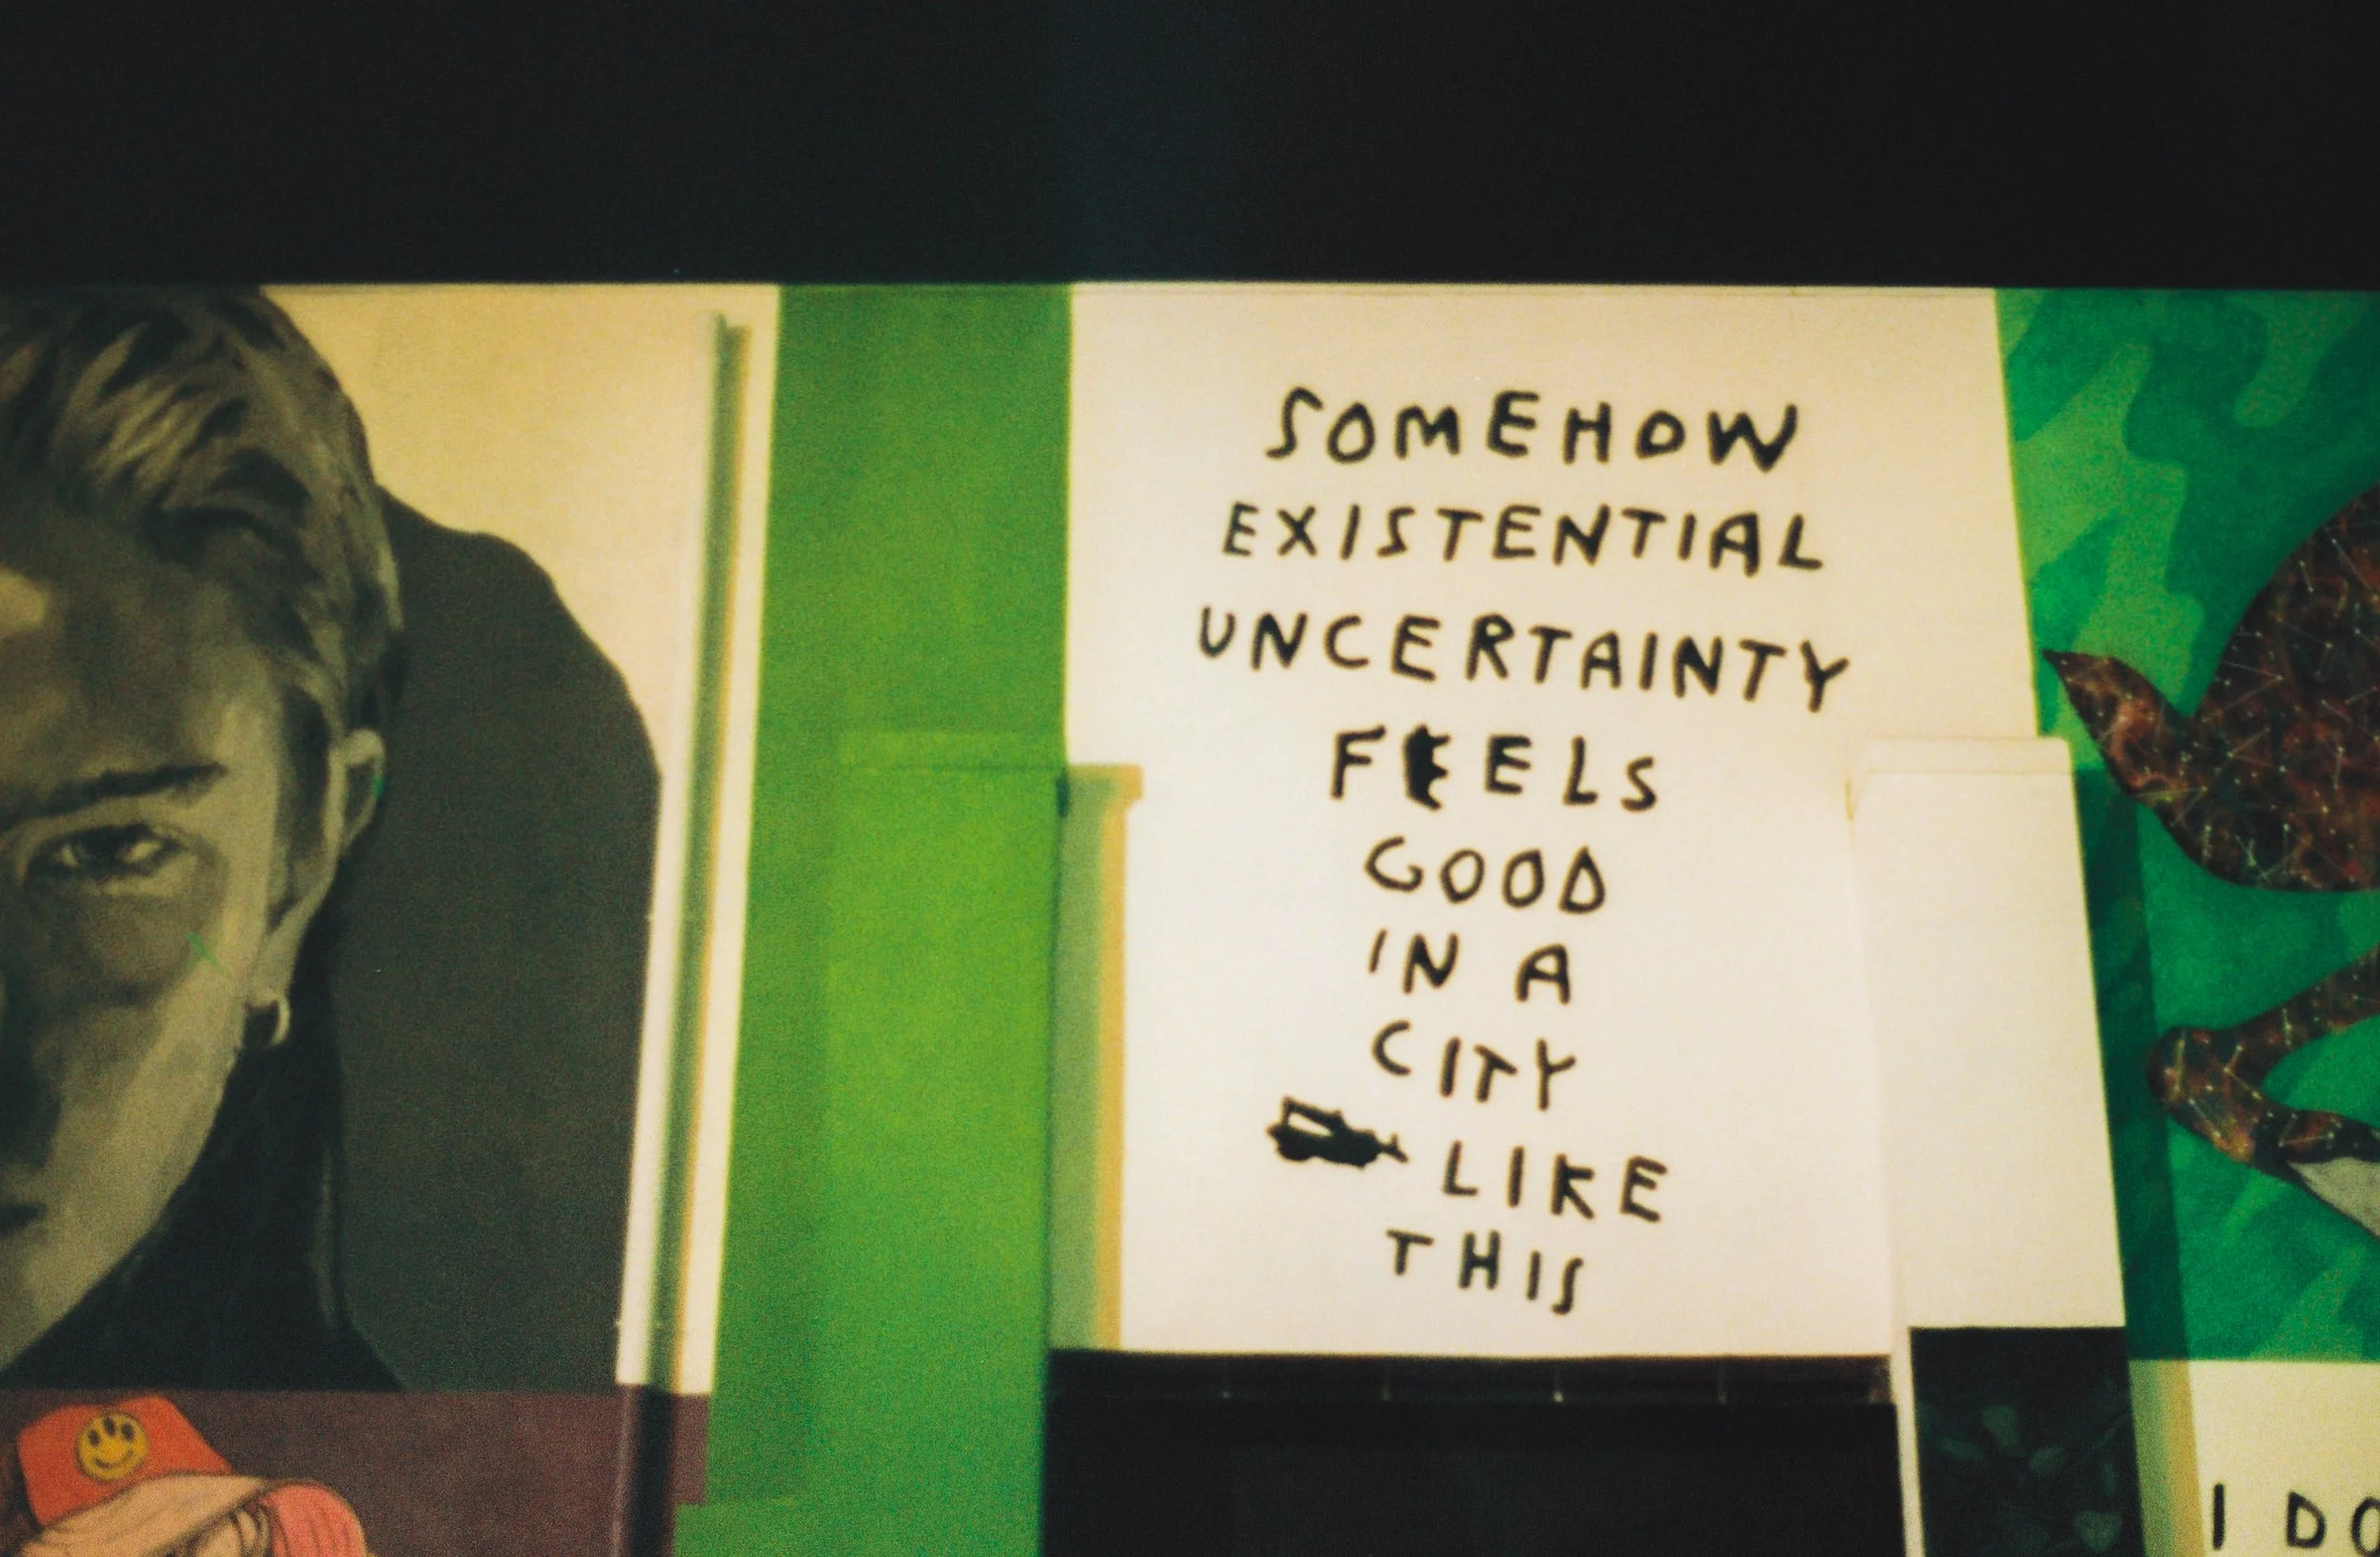 SOMEHOW
EXISTENTIAL
UNCERTAINTY
FEELS
GOOD
IN A
CITY
LIKE
THIS
I DO